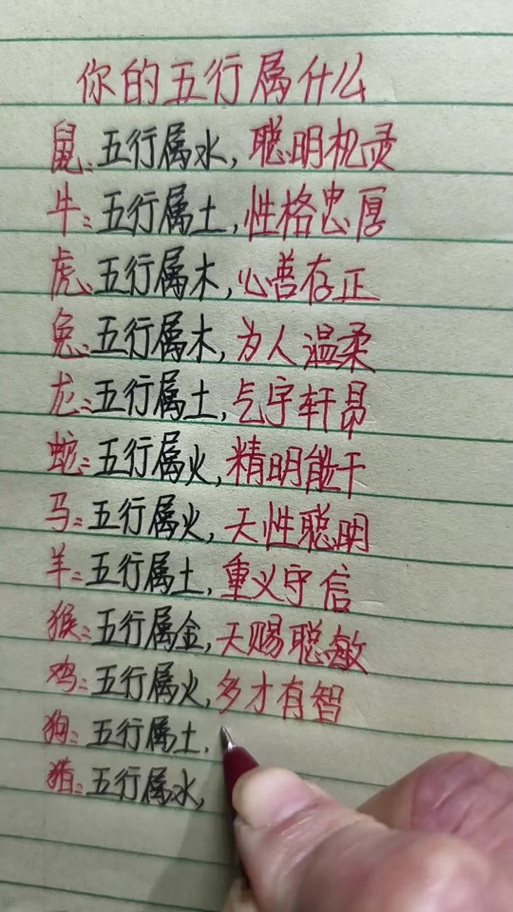 你的五行属什么
鼠:五行属水,聪明机灵
牛:五行属土,性格忠厚
虎:五行属木,心善存正
兔:五行属木,为人温柔
龙:五行属土,气宇轩昂
蛇:五行属火,精明能干
马:五行属火,天性聪明
羊:五行属土,重义守信
猴:五行属金,天赐聪敏
鸡:五行属火,多才有智
狗:五行属土,
猪:五行属水,